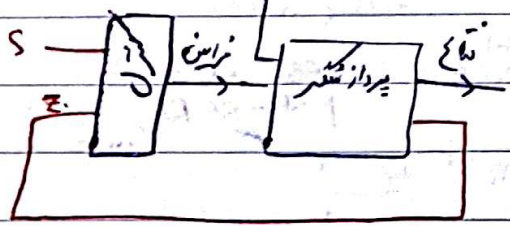 S
Z
فرامین
پردازشگر
نتایج